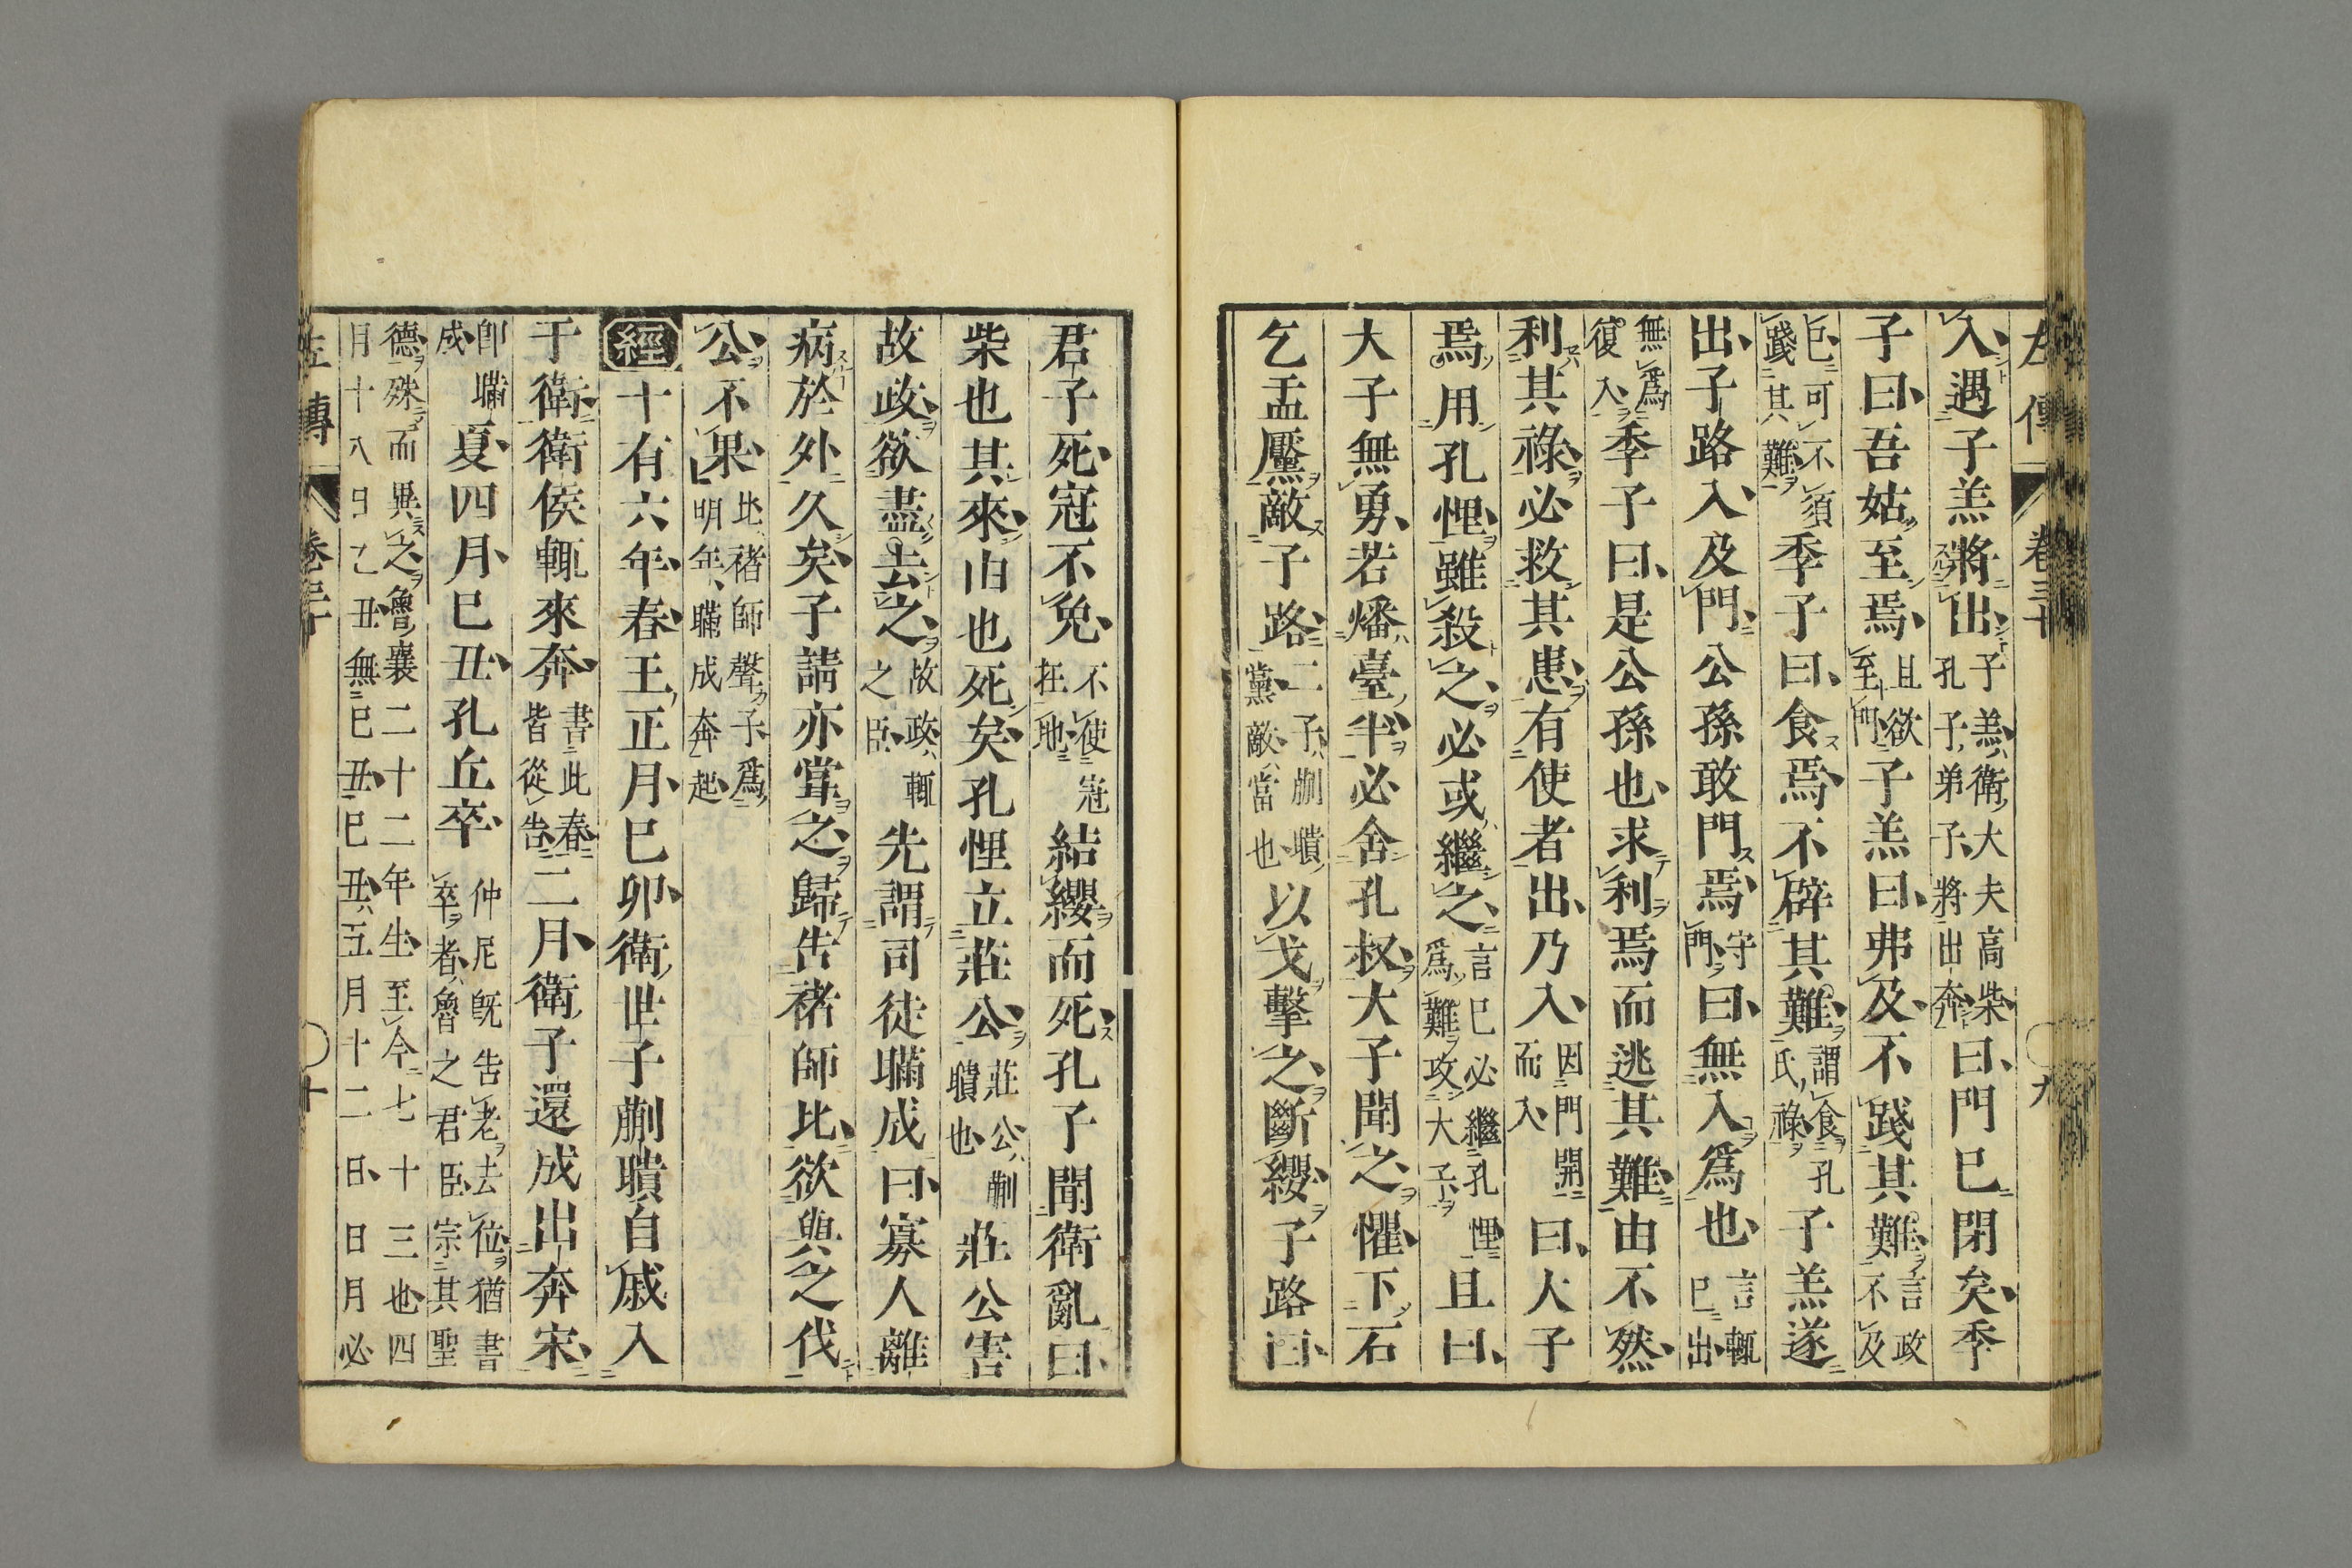 左傳 卷三十 九
入遇子羔將出子羔衛大夫高柴孔子弟子將出奔曰門已閉矣季
子曰吾姑至焉且欲至門子羔曰弗及不踐其難言政不及
已可不須踐其難季子曰食焉不辟其難謂食孔氏祿子羔遂
出子路入及門公孫敢門焉守門曰無入爲也言輒已出
無爲復入季子曰是公孫也求利焉而逃其難由不然
利其祿必救其患有使者出乃入因門開而入曰大子
焉用孔悝雖殺之必或繼之言已必繼孔悝爲難攻大子且曰
大子無勇若燔臺半必舍孔叔大子聞之懼下石
乞盂黶敵子路二子蒯聵黨敵當也以戈擊之斷纓子路曰
君子死冠不免不使冠在地結纓而死孔子聞衛亂曰
柴也其來由也死矣孔悝立莊公莊公蒯聵也莊公害
故政欲盡去之故政輒之臣先謂司徒瞞成曰寡人離
病於外久矣子請亦嘗之歸告褚師比欲與之伐
公不果比褚師聲子爲明年瞞成奔起
經十有六年春王正月己卯衛世子蒯聵自戚入
于衛衛侯輒來奔書此春皆從告二月衛子還成出奔宋
卽瞞成夏四月己丑孔丘卒仲尼旣告老去位猶書卒者魯之君臣宗其聖
德殊而異之魯襄二十二年生至今七十三也四月十八日乙丑無己丑己丑五月十二日日月必
左傳 卷三十 十